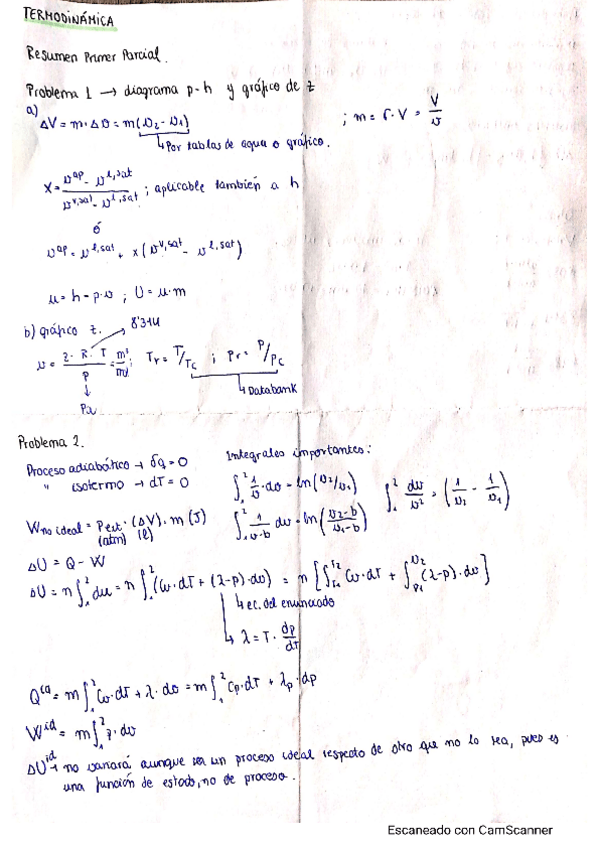 TERMODINÁMICA
Resumen Primer Parcial.
Problema 1 → diagrama p-h y gráfico de z
a)
ΔV = m·Δv = m(v₂ - v₁) ; m = ρ·V = V/v
↳ Por tablas de agua o gráfico.
x = (v^ap - v^l,sat)/(v^v,sat - v^l,sat) ; aplicable también a h
ó
v^ap = v^l,sat + x(v^v,sat - v^l,sat)
u = h - p·v ; U = u·m
b) gráfico z. 8'314
v = (z·R·T)/P = m³/mol ; Tr = T/Tc ; Pr = P/Pc
↓ ↳ Databank
Pa
Problema 2. Integrales importantes:
Proceso adiabático → δQ = 0
" isotermo → dT = 0
∫₁² 1/v · dv = ln(v₂/v₁) ∫₁² dv/v² = (1/v₂ - 1/v₁)
∫₁² 1/(v-b) dv = ln((v₂-b)/(v₁-b))
W no ideal = Pext·(ΔV)·m (J)
(atm) (l)
ΔU = Q - W
ΔU = n∫₁² du = n∫₁² (Cv·dT + (λ-p)·dv) = n[∫T₁^T₂ Cv·dT + ∫p₁^v₂ (λ-p)·dv]
↳ ec. del enunciado
↳ λ = T · dp/dT
Q^id = m∫₁² Cv·dT + λ·dv = m∫₁² Cp·dT + λp·dp
W^id = m∫₁² p·dv
ΔU^id → no variará aunque sea un proceso ideal respecto de otro que no lo sea, pues es
una función de estado, no de proceso.
Escaneado con CamScanner